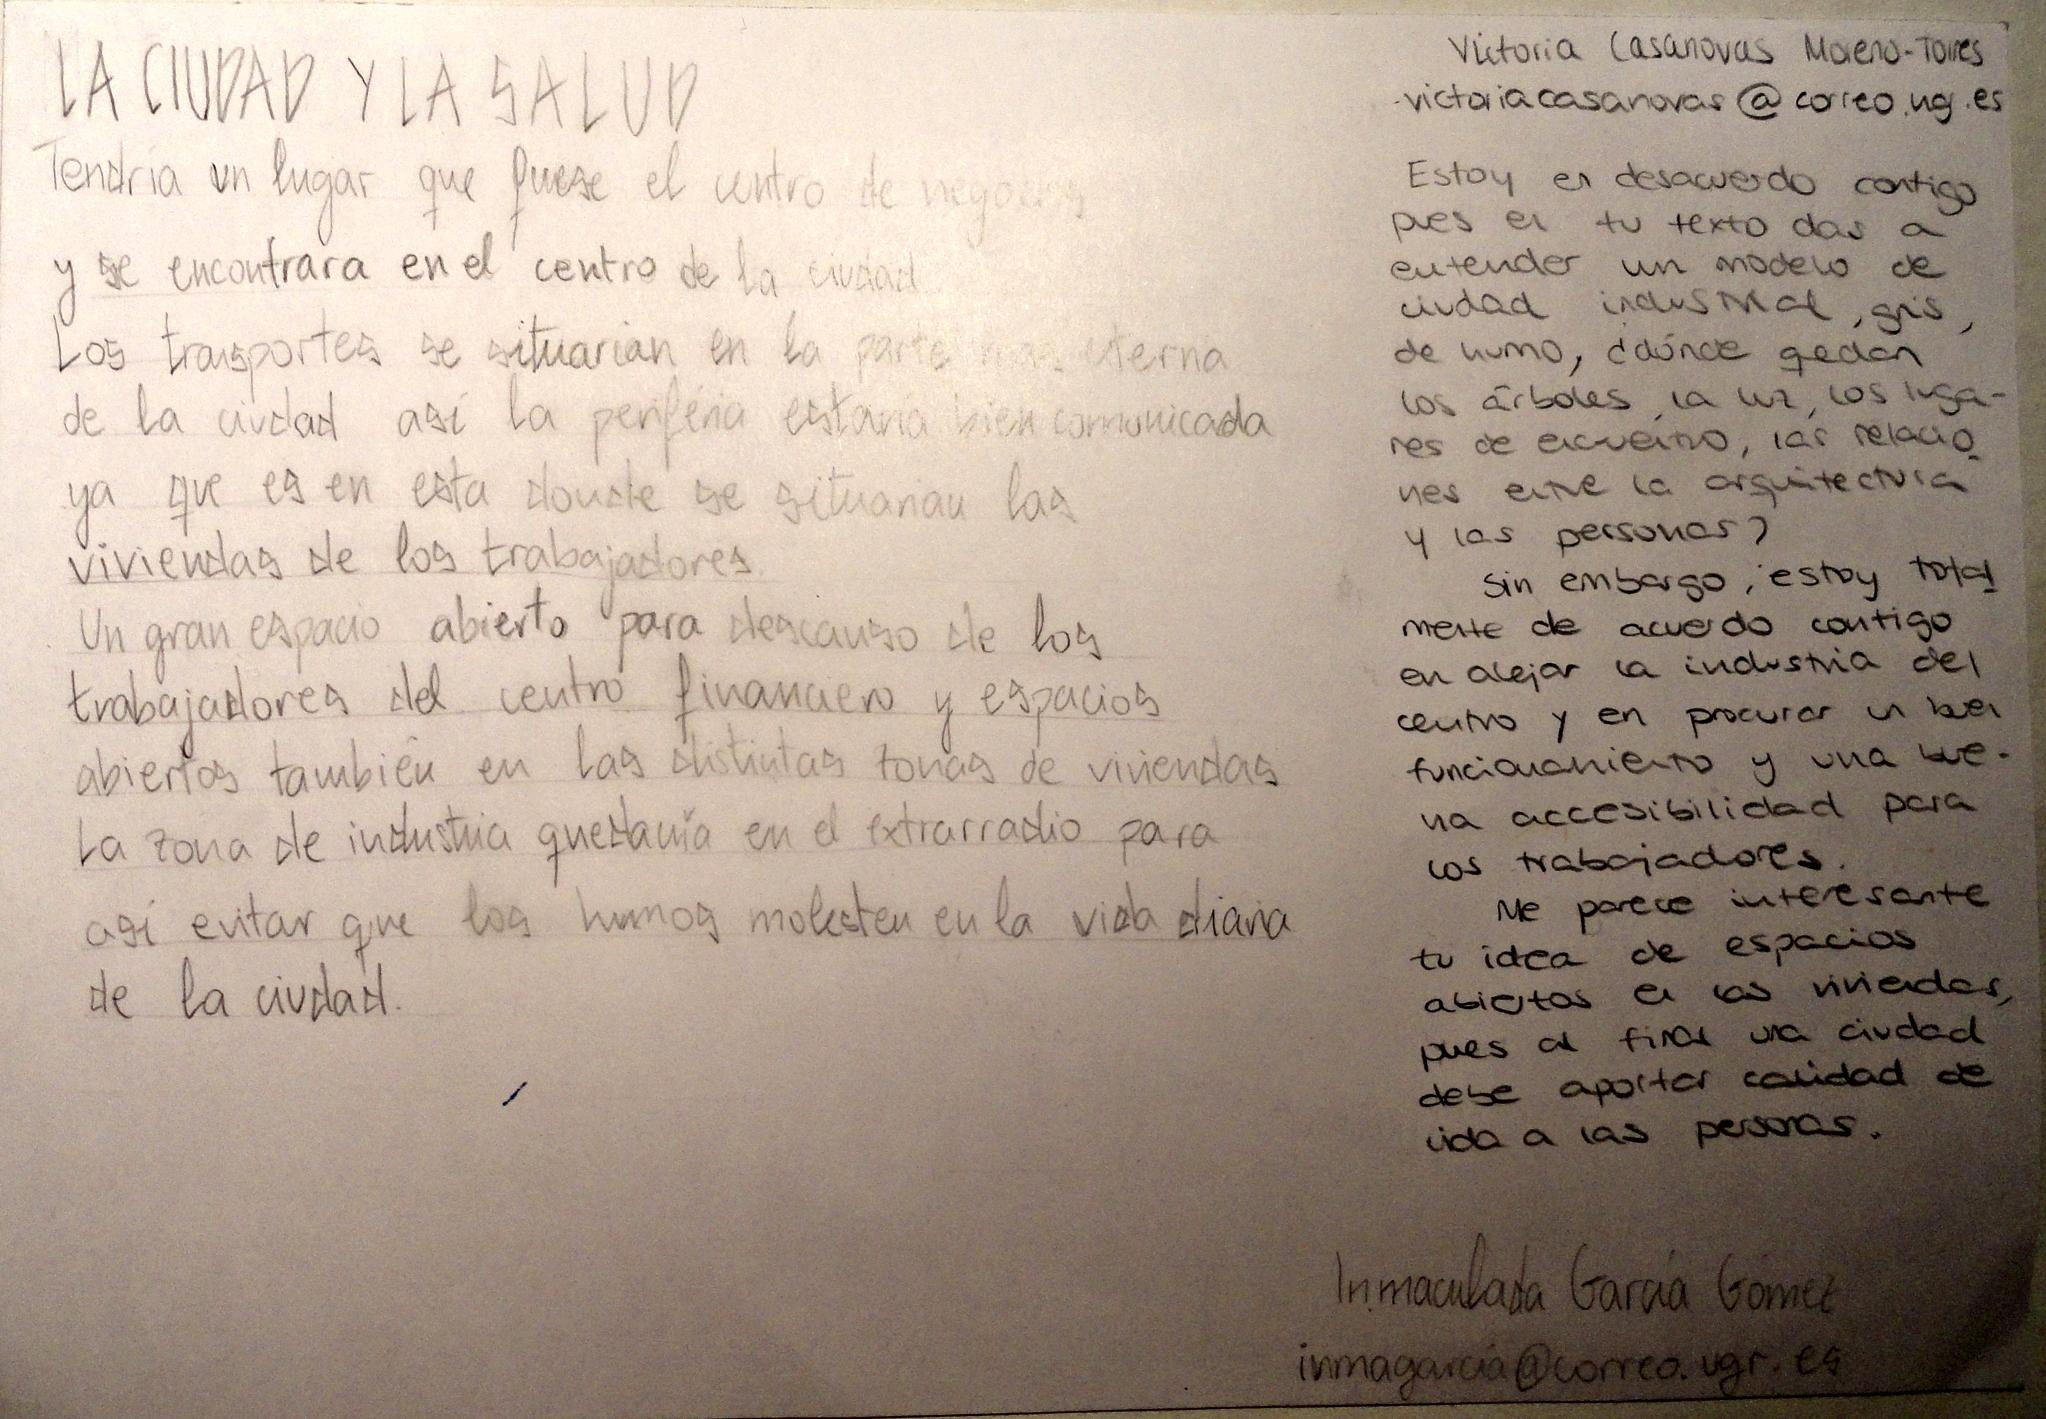 LA CIUDAD Y LA SALUD
Tendría un lugar que fuese el centro de negocios
y se encontrara en el centro de la ciudad.
Los transportes se situarian en la parte mas externa
de la ciudad así la periféria estaría bien comunicada
ya que es en esta donde se situarian las
viviendas de los trabajadores.
Un gran espacio abierto para descanso de los
trabajadores del centro financiero y espacios
abiertos también en las distintas zonas de viviendas
La zona de industria quedaría en el extrarradio para
así evitar que los humos molesten en la vida diaria
de la ciudad.
Victoria Casanovas Moreno-Torres
victoriacasanovas@correo.ugr.es
Estoy en desacuerdo contigo
pues en tu texto das a
entender un modelo de
ciudad industrial, gris,
de humo, ¿dónde qedan
los árboles, la luz, los luga-
res de encuentro, las relacio-
nes entre la arquitectura
y las personas?
Sin embargo, estoy total
mente de acuerdo contigo
en alejar la industria del
centro y en procurar un buen
funcionamiento y una bue-
na accesibilidad para
los trabajadores.
Me parece interesante
tu idea de espacios
abiertos en las viviendas,
pues al final una ciudad
debe aportar calidad de
vida a las personas.
Inmaculada García Gómez
inmagarcia@correo.ugr.es